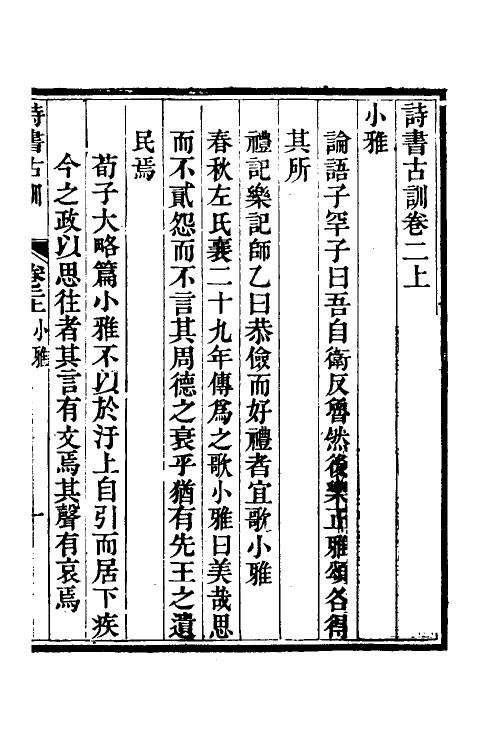 詩書古訓卷二上
小雅
論語子罕子曰吾自衛反魯然後樂正雅頌各得
其所
禮記樂記師乙曰恭儉而好禮者宜歌小雅
春秋左氏襄二十九年傳爲之歌小雅曰美哉思
而不貳怨而不言其周德之衰乎猶有先王之遺
民焉
荀子大略篇小雅不以於汙上自引而居下疾
今之政以思往者其言有文焉其聲有哀焉
詩書古訓 卷二上 小雅 一